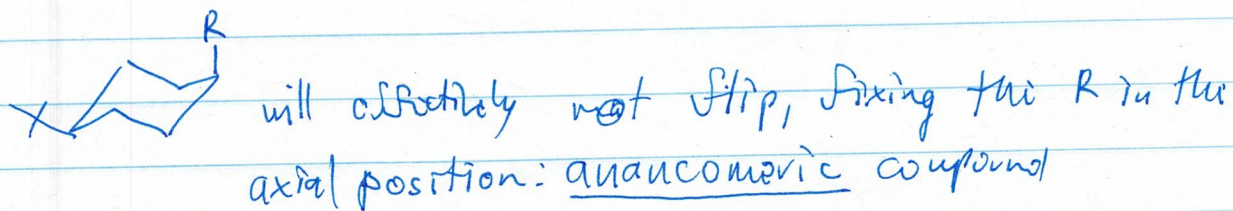 R
will effectively not flip, fixing the R in the
axial position: anancomeric compound